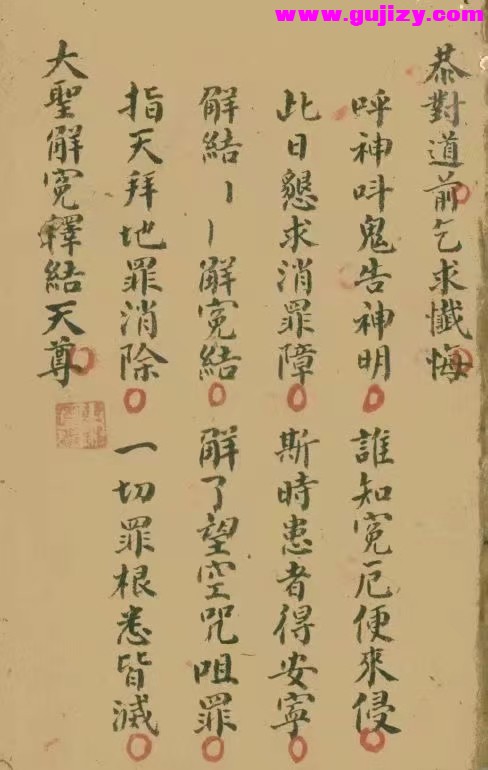 www.gujizy.com
恭對道前乞求懺悔
呼神呌鬼告神明　誰知寃厄便來侵
此日懇求消罪障　斯時患者得安寧
解結〻〻解寃結　解了望空咒咀罪
指天拜地罪消除　一切罪根悉皆滅
大聖解寃釋結天尊